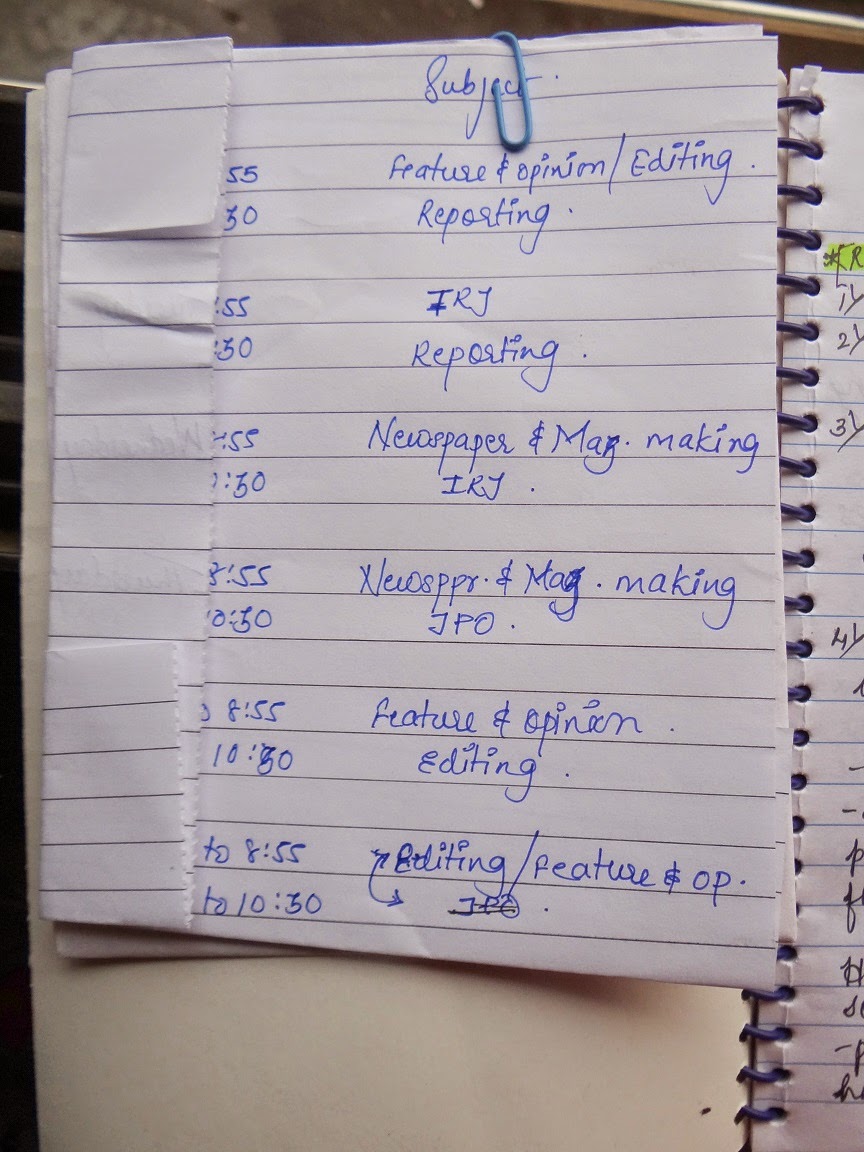 Subject.
55 Feature & opinion/Editing.
30 Reporting.
:55 IRJ
:30 Reporting.
:55 Newspaper & Mag. making
:30 IRJ.
8:55 Newsppr. & Mag. making
0:30 JPO.
8:55 Feature & opinion.
10:30 Editing.
to 8:55 Editing/Feature & op.
to 10:30 JPO.
*R
1)
2)
3)
4)